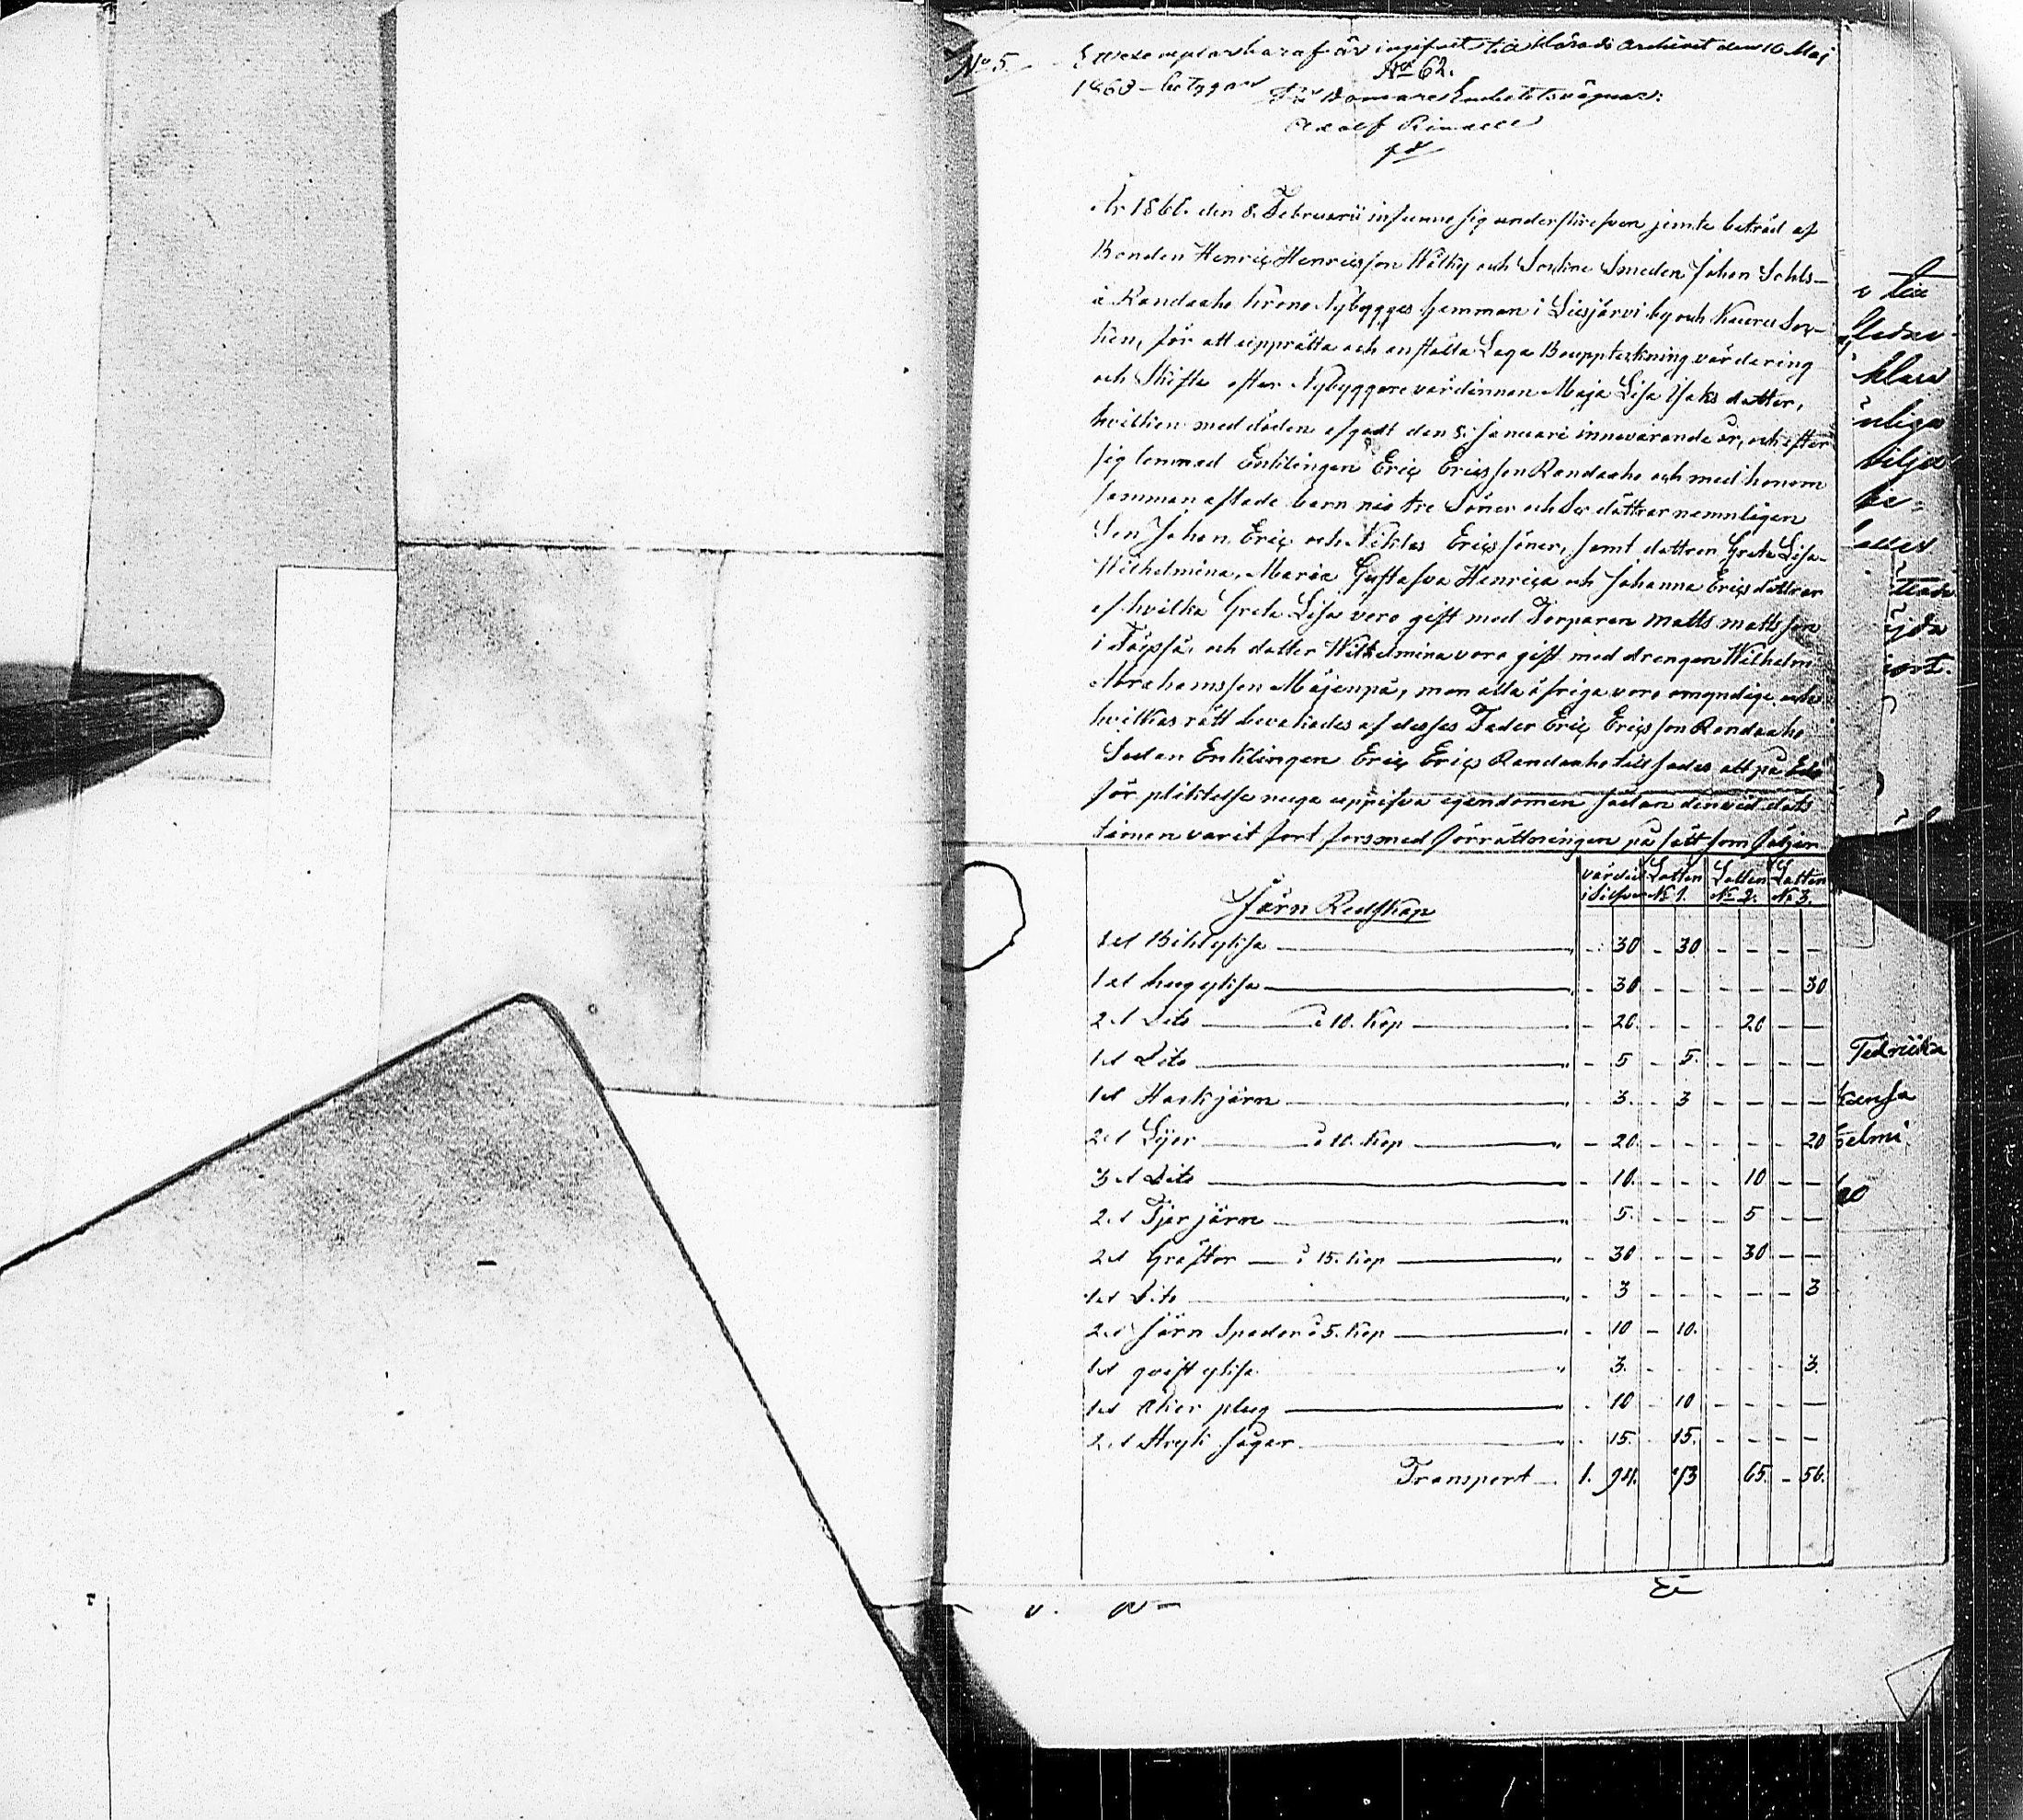 No 5.
Ett exemplar haraf är ingifvet till Härads Archivet den 16 Maj
No 62.
1868 – betygar
På Domare Embetets vägnar:
Adolf
År 1868. den 8. Februarii infunno sig underskrefven jemte beträd af
Bonden Henric Henricsson Wilky och Sockne Smeden Johan Sahls-
å Randaaho Krono Nybygges hemman i Liesjärvi by och Keuru Sok-
ken, för att upprätta och anställa Laga Bouppteckning värdering
och Skifte efter Nybyggare värdinnan Maja Lisa Isaks dotter,
hvilken med döden afgått den 5. Januari innevarande år, och efter
sig lemnad Enklingen Eric Ericsson Randaaho och med honom
samman aflade barn nio tre Söner och Sex döttrar nemnligen
Son Johan, Eric och Niklas Ericssöner, samt dottren Greta Lisa
Wilhelmina, Maria Gustafva Henrica och Johanna Erics döttrar
af hvilka Greta Lisa vore gift med Torparen Matts Mattsson
i och dotter Wilhelmina vore gift med drengen Wilhelm
Abrahamsson Mäjenpä, men alla öfriga voro omyndige och
hvilkas rätt bevakades af desses Fader Eric Ericsson Randaaho
Sedan Enklingen Eric Erics Randaaho tillsades att på Eds
för pliktelse noga uppifva egendomen sådan den vid döds
timen varit fort fors med förrättningen på sätt som följer
Järn Redskap
värdet i Silfver Lotten No 1. Lotten No 2. Lotten No 3.
1 st Bihlyksa " - 30 - 30 - - - -
1 st hugyksa " - 30 - - - - - 30
2 st Dito à 10. Kop " - 20 - - - 20 - -
1 st Dito " - 5 - 5. - - - -
1 st Hackjärn " - 3. - 3 - - - -
2 st Lijer à 10. Kop " - 20. - - - - - 20
3 st Dito " - 10. - - - 10 - -
2 st Tjerjärn " - 5. - - - 5 - -
2 st Gräftor à 15. Kop " - 30 - - - 30 - -
1 st Dito " - 3 - - - - - 3
2 st Järn Spader à 5. Kop " - 10 - 10.
1 st qvistyksa " - 3. - - - - - 3.
1 st Åker plug - 10 - 10 - - - -
2 st Stryk sågar " - 15. - 15. - - - -
Transport 1. 94. 73 65. - 56.
till
klara
ort.